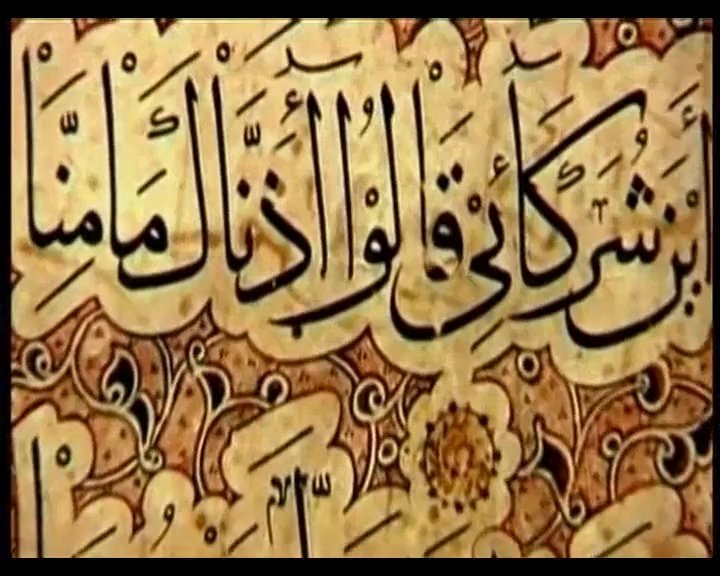 أَيْنَ شُرَكَآئِي قَالُوٓا۟ أَذَنَّاكَ مَامِنَّا